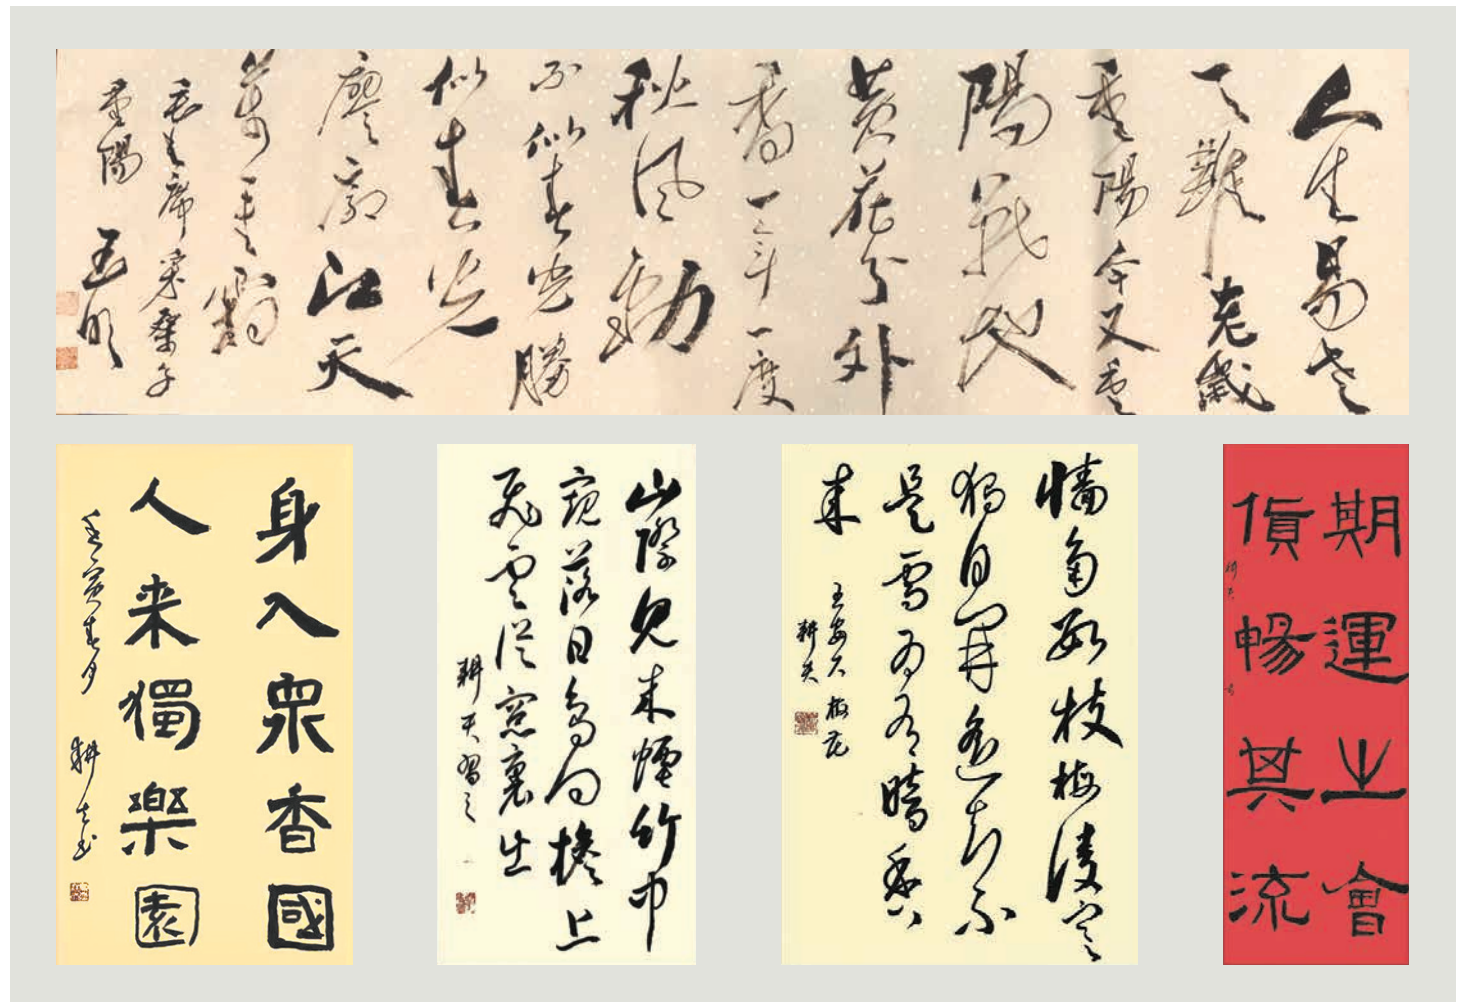 人生易老
天難老歲
重陽今又重
陽戰地
黄花分外
香一年一度
秋風勁
不似春光勝
似春光
廖廓江天
萬里霜
毛主席采桑子
重陽 玉明
身入眾香國
人来獨樂園
壬寅春夕 耕夫书
山際見来煙竹中
窺落日鳥向檐上
飛雲從窓裏出
耕夫習之
墙角数枝梅凌寒
獨自開遥知不
是雪為有暗香
来
王安石梅花
耕夫
期運之會
貨暢其流
耕夫